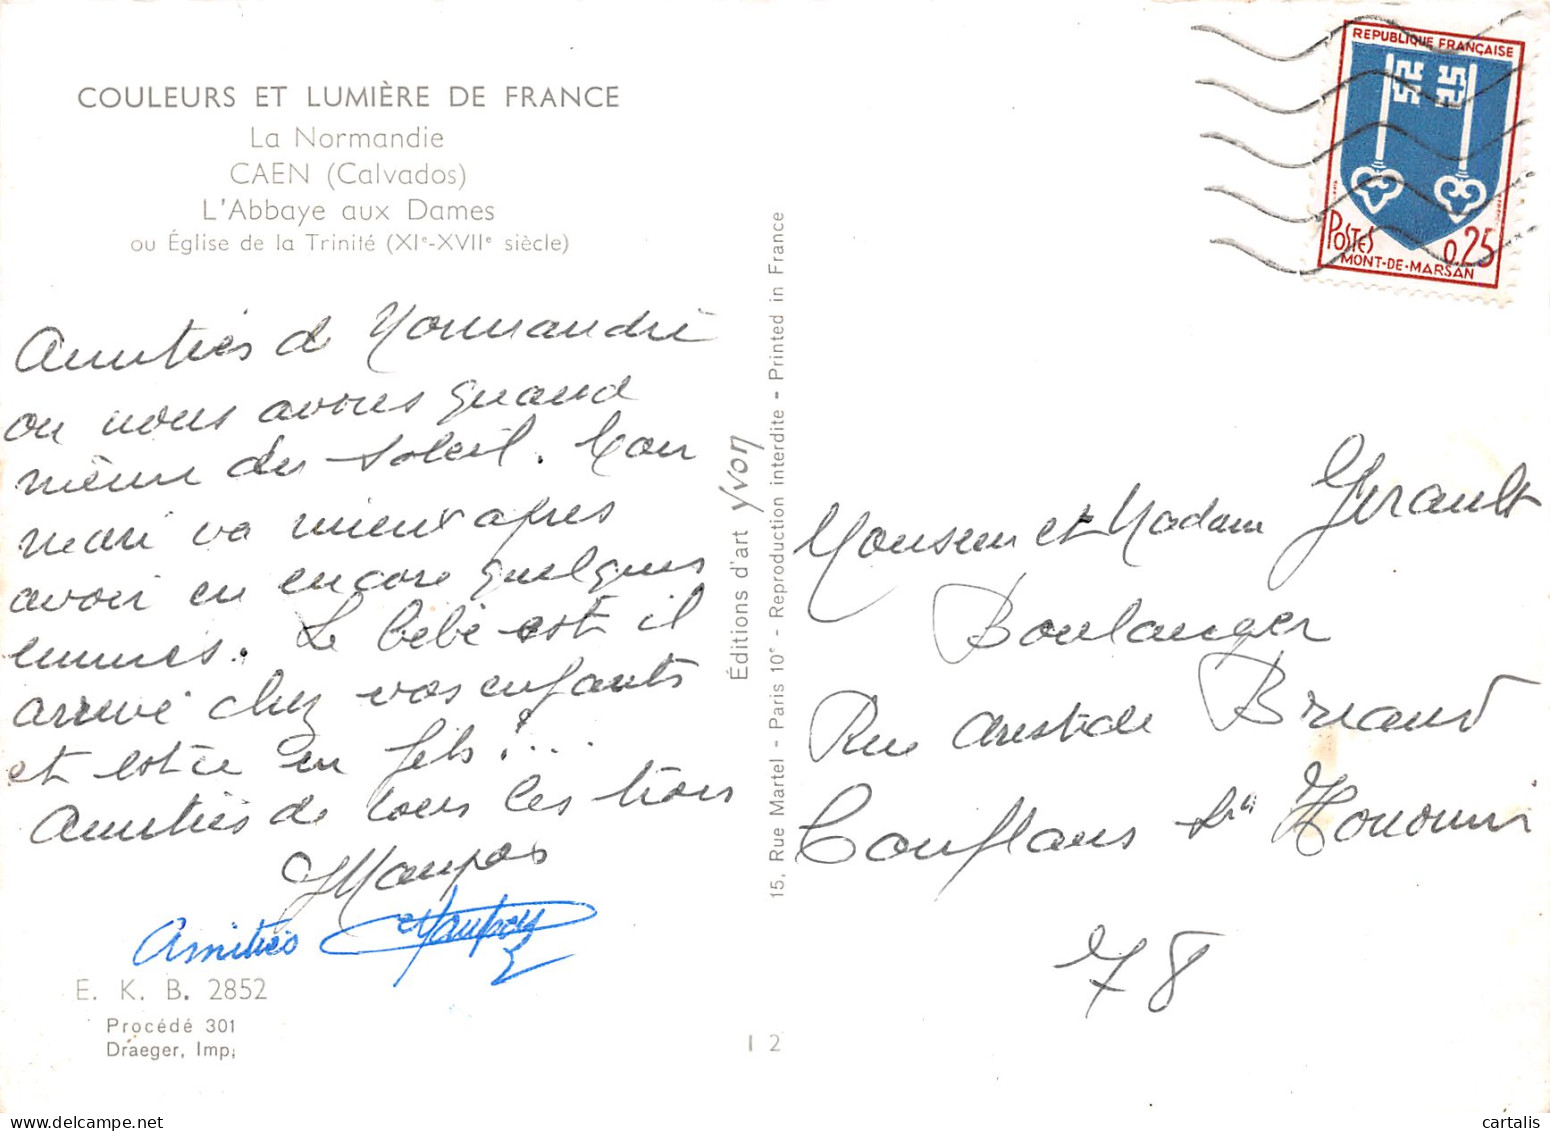 COULEURS ET LUMIÈRE DE FRANCE
La Normandie
CAEN (Calvados)
L'Abbaye aux Dames
ou Église de la Trinité (XIe-XVIIe siècle)
Amitiés de Normandie
ou nous avons quand
même du soleil. Mon
mari va mieux apres
avoir eu encore quelques
ennuis. Le bébé est il
arrivé chez vos enfants
et est ce un fils?...
Amitiés de tous les trois
Maupas
Amitiés
E. K. B. 2852
Procédé 301
Draeger, Imp;
Éditions d'art yvon
15, Rue Martel - Paris 10e - Reproduction interdite - Printed in France
I 2
REPUBLIQUE FRANÇAISE
POSTES 0,25
MONT-DE-MARSAN
Monsieur et Madame Girault
Boulanger
Rue Aristide Briand
Conflans Ste Honorine
78
cartalis